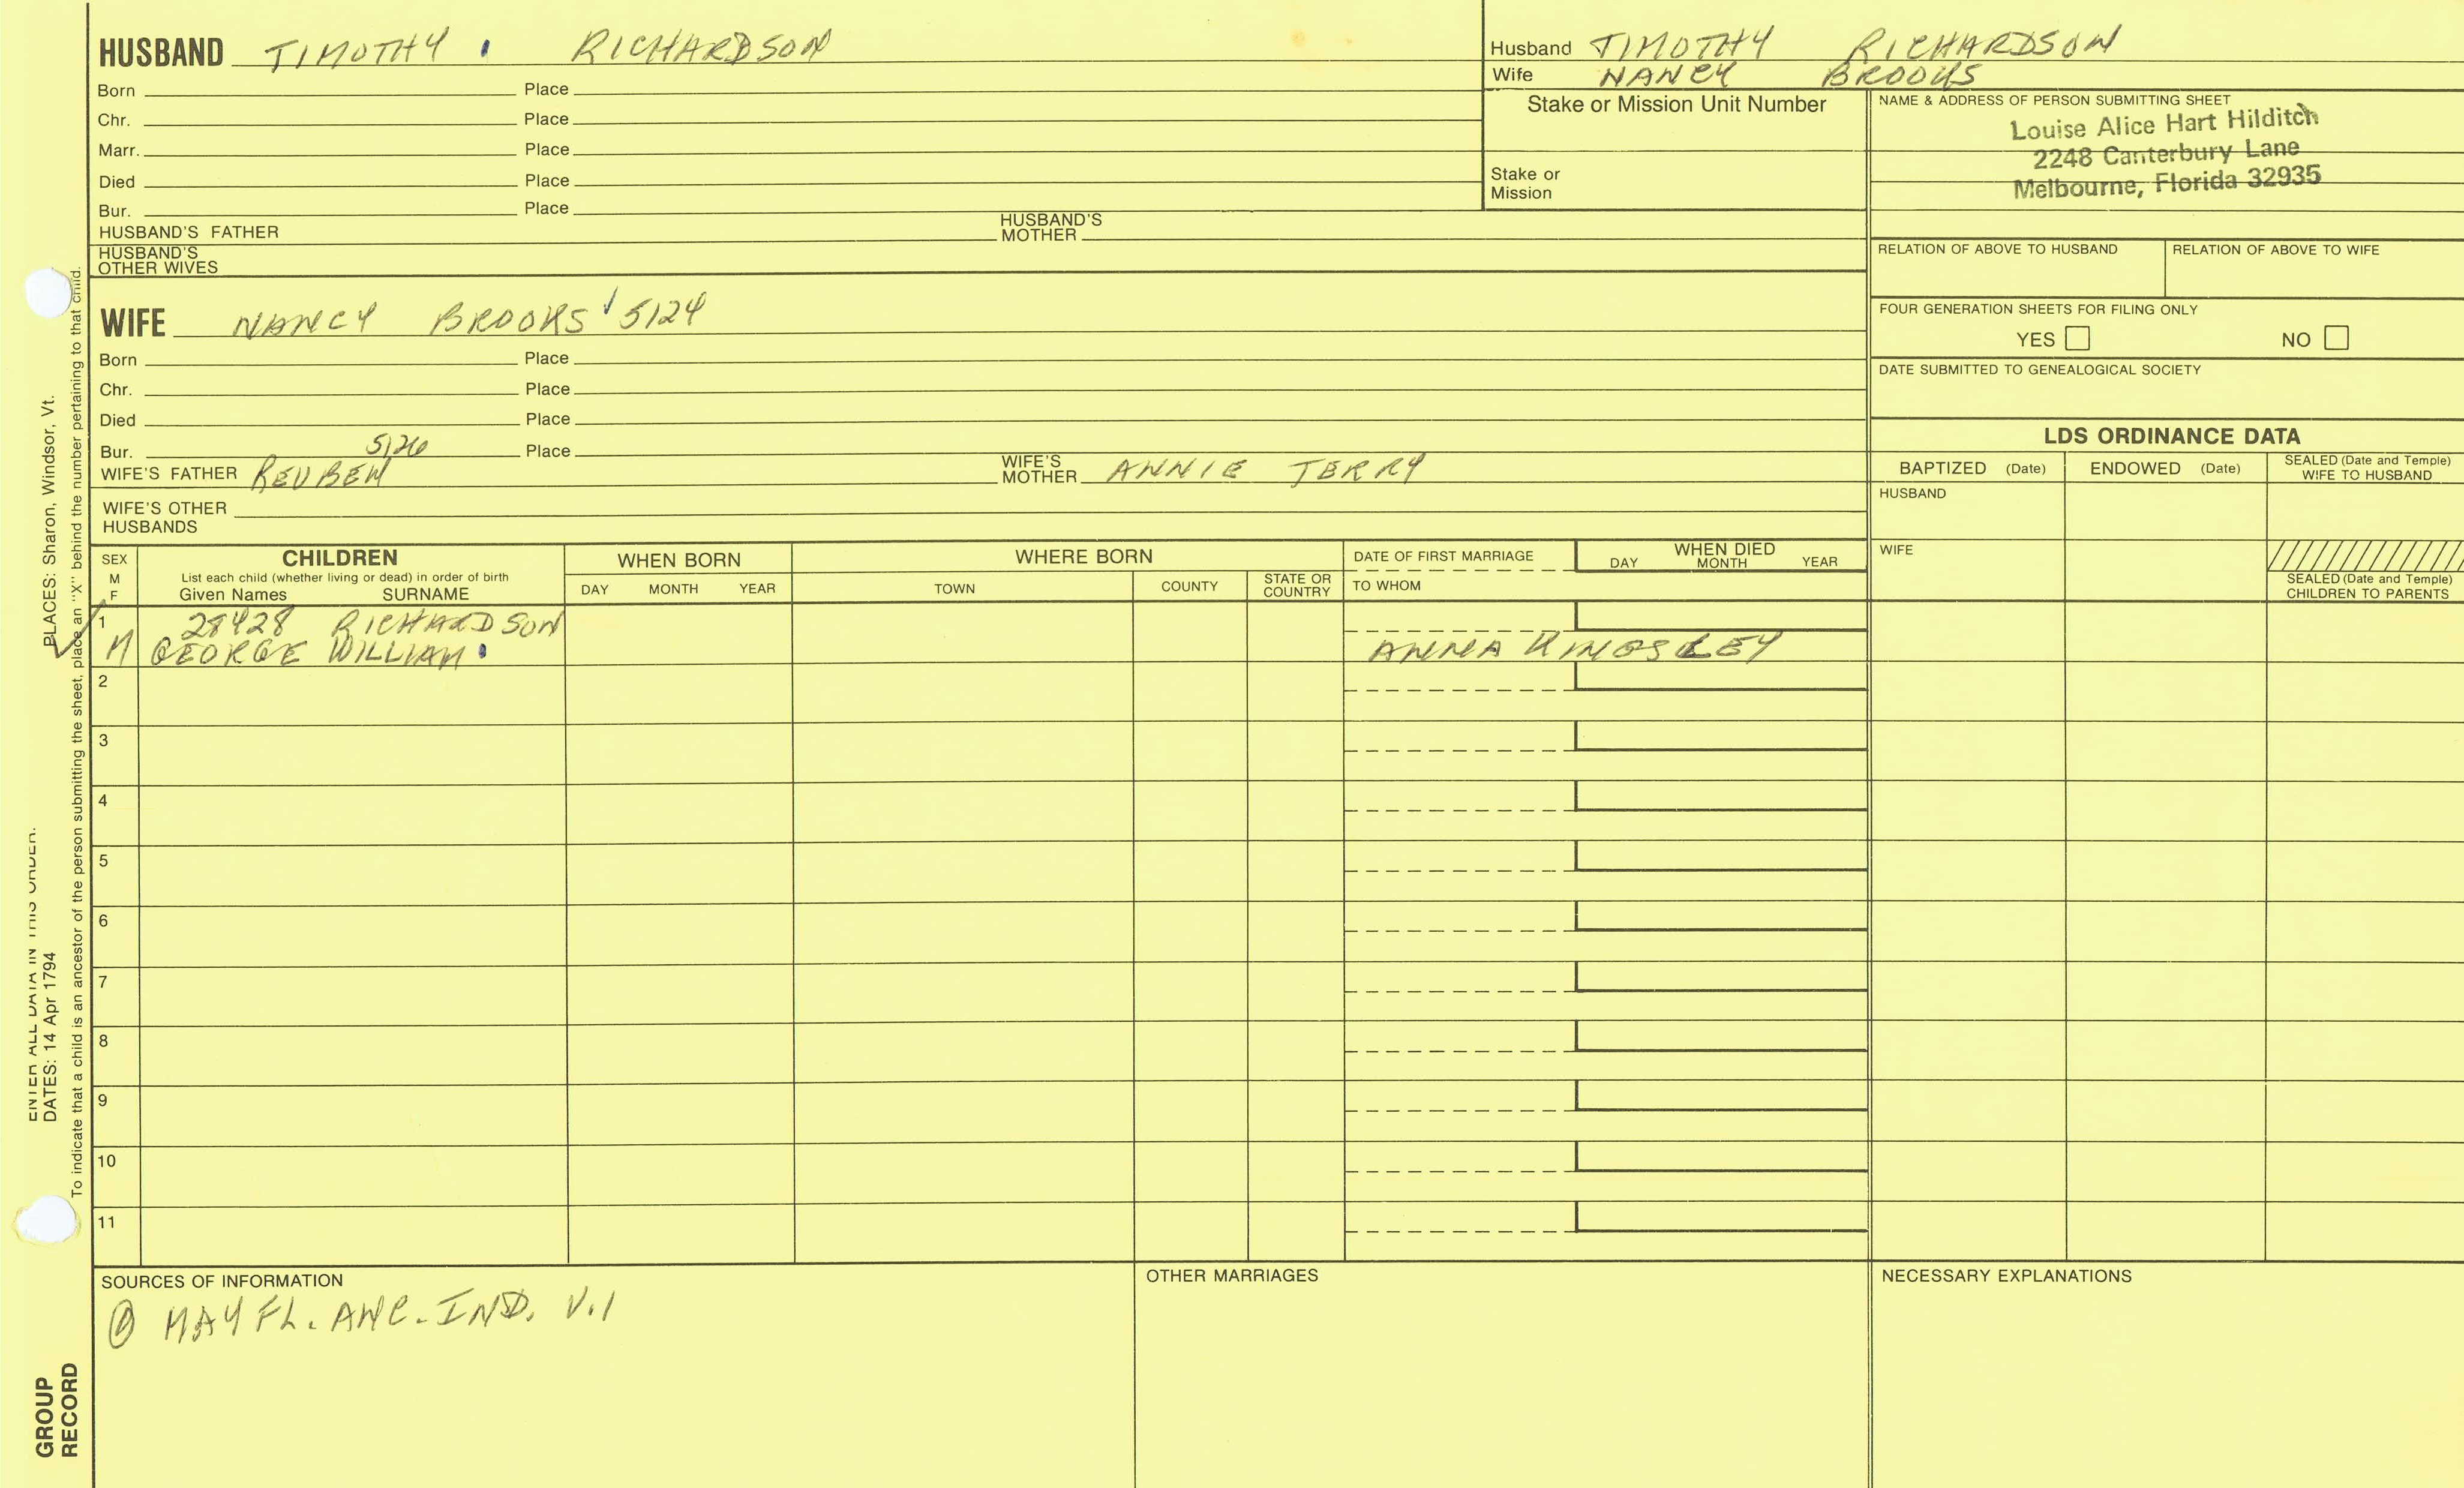 HUSBAND TIMOTHY RICHARDSON
Born Place
Chr. Place
Marr. Place
Died Place
Bur. Place
HUSBAND'S FATHER HUSBAND'S MOTHER
HUSBAND'S OTHER WIVES
Husband TIMOTHY RICHARDSON
Wife NANCY BROOKS
Stake or Mission Unit Number
Stake or Mission
NAME & ADDRESS OF PERSON SUBMITTING SHEET
Louise Alice Hart Hilditch
2248 Canterbury Lane
Melbourne, Florida 32935
RELATION OF ABOVE TO HUSBAND RELATION OF ABOVE TO WIFE
FOUR GENERATION SHEETS FOR FILING ONLY
YES NO
DATE SUBMITTED TO GENEALOGICAL SOCIETY
WIFE NANCY BROOKS 5124
Born Place
Chr. Place
Died Place
Bur. Place
5126
WIFE'S FATHER REUBEN WIFE'S MOTHER ANNIE TERRY
WIFE'S OTHER HUSBANDS
LDS ORDINANCE DATA
BAPTIZED (Date) ENDOWED (Date) SEALED (Date and Temple) WIFE TO HUSBAND
HUSBAND
WIFE
SEALED (Date and Temple) CHILDREN TO PARENTS
SEX M F
CHILDREN
List each child (whether living or dead) in order of birth
Given Names SURNAME
WHEN BORN
DAY MONTH YEAR
WHERE BORN
TOWN COUNTY STATE OR COUNTRY
DATE OF FIRST MARRIAGE
TO WHOM
WHEN DIED
DAY MONTH YEAR
1 28428 RICHARDSON
M GEORGE WILLIAM ANNA KINGSLEY
2
3
4
5
6
7
8
9
10
11
SOURCES OF INFORMATION
MAY FL. ANC. IND. V.1
OTHER MARRIAGES
NECESSARY EXPLANATIONS
ENTER ALL DATA IN THIS ORDER.
DATES: 14 Apr 1794 PLACES: Sharon, Windsor, Vt.
To indicate that a child is an ancestor of the person submitting the sheet, place an "X" behind the number pertaining to that child.
GROUP
RECORD